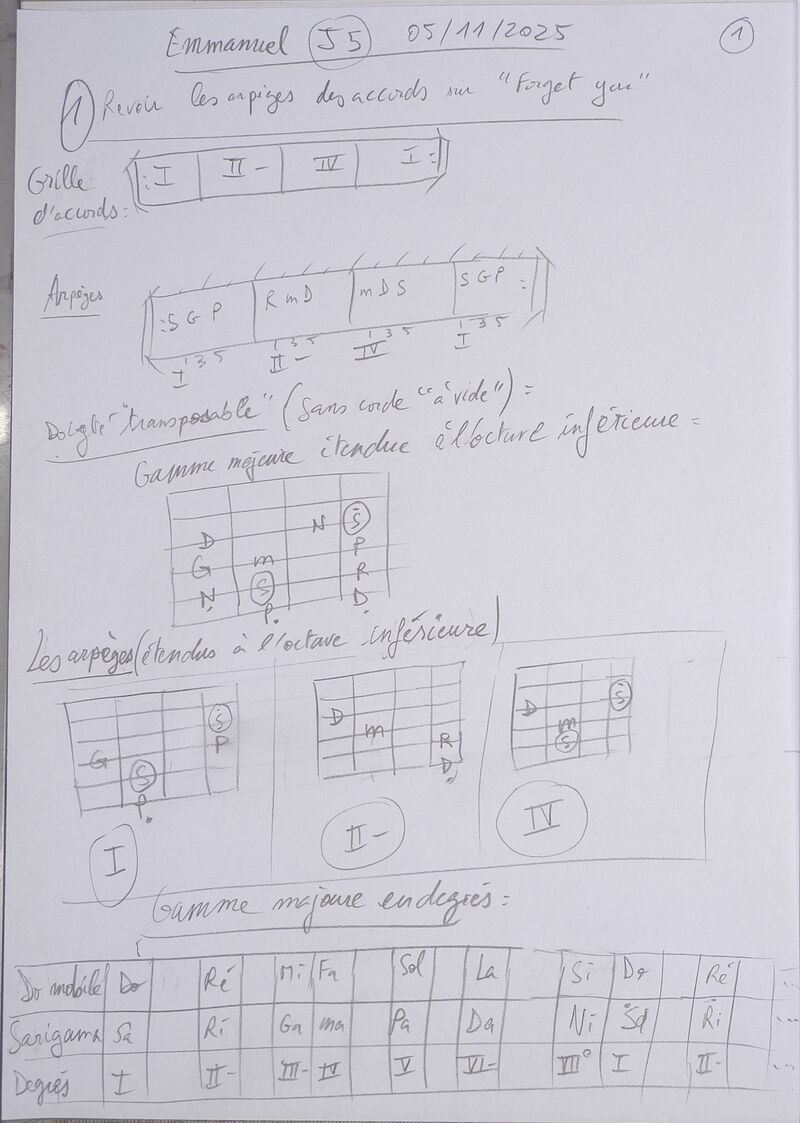 Emmanuel J5 05/11/2025 1
1 Revoir les arpèges des accords sur "Forget you"
Grille d'accords:
: I II- IV I :
Arpèges
: S G P R m D m D S S G P :
1 3 5 1 3 5 1 3 5 1 3 5
I II- IV I
Doigté "transposable" (sans corde "à vide") =
Gamme majeure étendue à l'octave inférieure =
N Ṡ
D P
G m R
Ṇ S Ḍ
P̣
Les arpèges (étendus à l'octave inférieure)
Ṡ
P
G
S
P̣
I
D
m
R
Ḍ
II-
Ṡ
D
m
S
IV
Gamme majeure en degrés =
Do mobile Do Ré Mi Fa Sol La Si Do Ré ...
Sarigama Sa Ri Ga ma Pa Da Ni Ṡa Ri ...
Degrés I II- III- IV V VI- VII° I II- ...